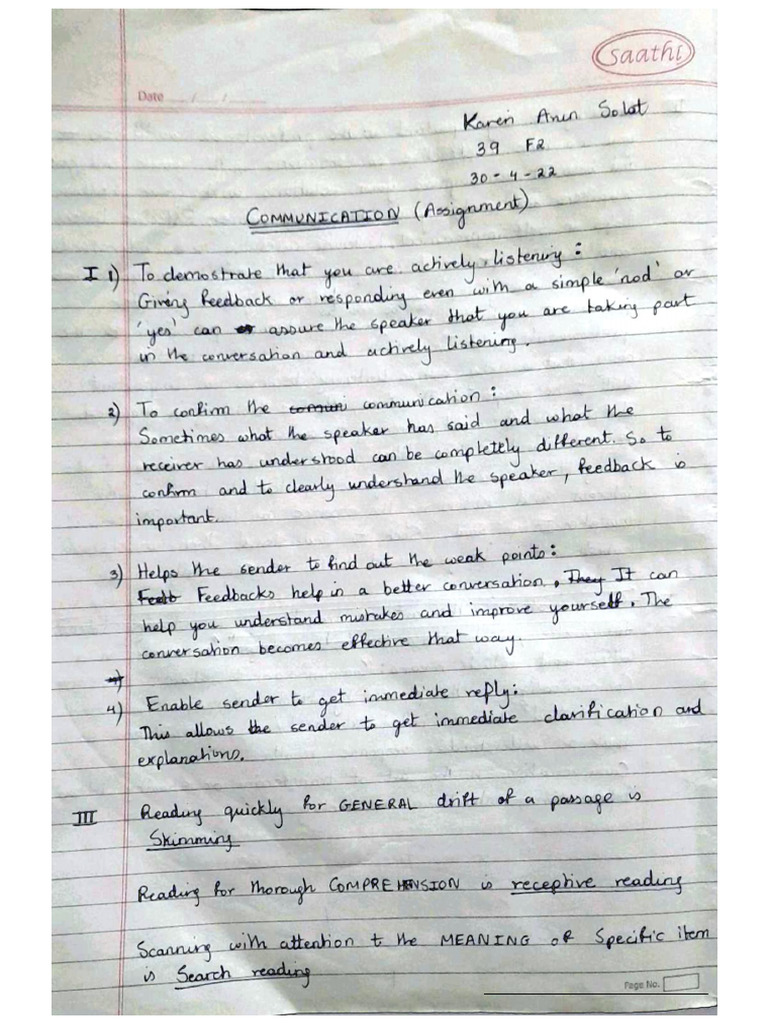 saathi
Date __/__/__
Karen Arun Solat
39 F2
30-4-22
COMMUNICATION (Assignment)
I 1) To demostrate that you are actively listening:
Giving feedback or responding even with a simple 'nod' or
'yes' can assure the speaker that you are taking part
in the conversation and actively listening.
2) To confirm the communication:
Sometimes what the speaker has said and what the
receiver has understood can be completely different. So to
confirm and to clearly understand the speaker, feedback is
important.
3) Helps the sender to find out the weak points:
Feedbacks help in a better conversation. It can
help you understand mistakes and improve yourself. The
conversation becomes effective that way.
4) Enable sender to get immediate reply:
This allows the sender to get immediate clarification and
explanations.
III Reading quickly for GENERAL drift of a passage is
Skimming
Reading for thorough COMPREHENSION is receptive reading
Scanning with attention to the MEANING of Specific item
is Search reading
Page No.